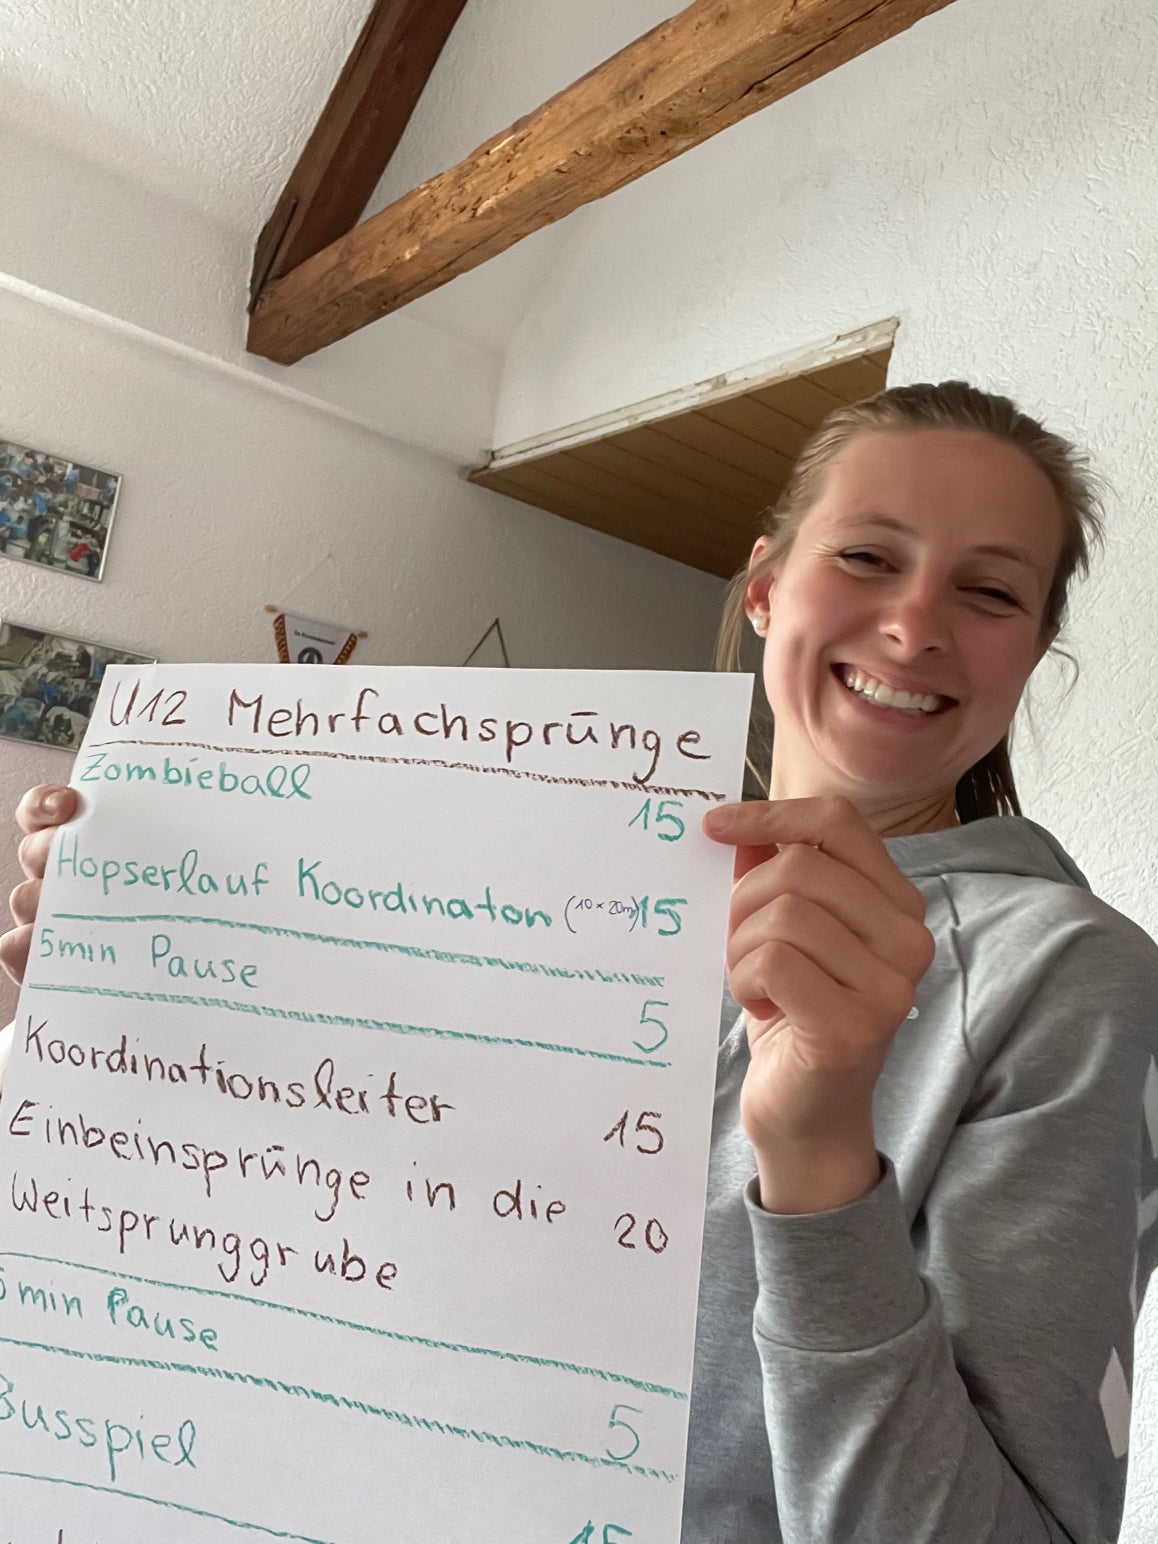 U12 Mehrfachsprünge
Zombieball
15
Hopserlauf Koordinaton (10 x 20m) 15
5min Pause
5
Koordinationsleiter
15
Einbeinsprünge in die
Weitsprunggrube
20
5 min Pause
5
Busspiel
15